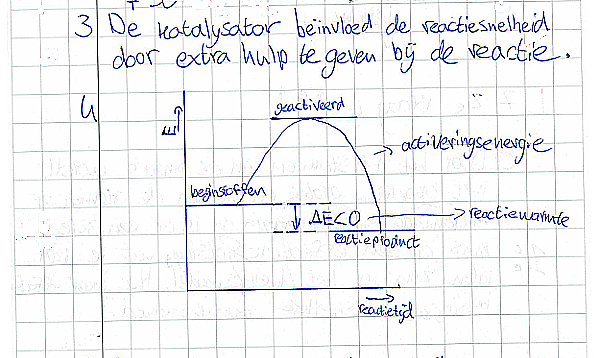 3 De katalysator beïnvloed de reactiesnelheid
door extra hulp te geven bij de reactie.
4
geactiveerd
E
activeringsenergie
beginstoffen
ΔE<0
reactiewarmte
reactieproduct
reactietijd